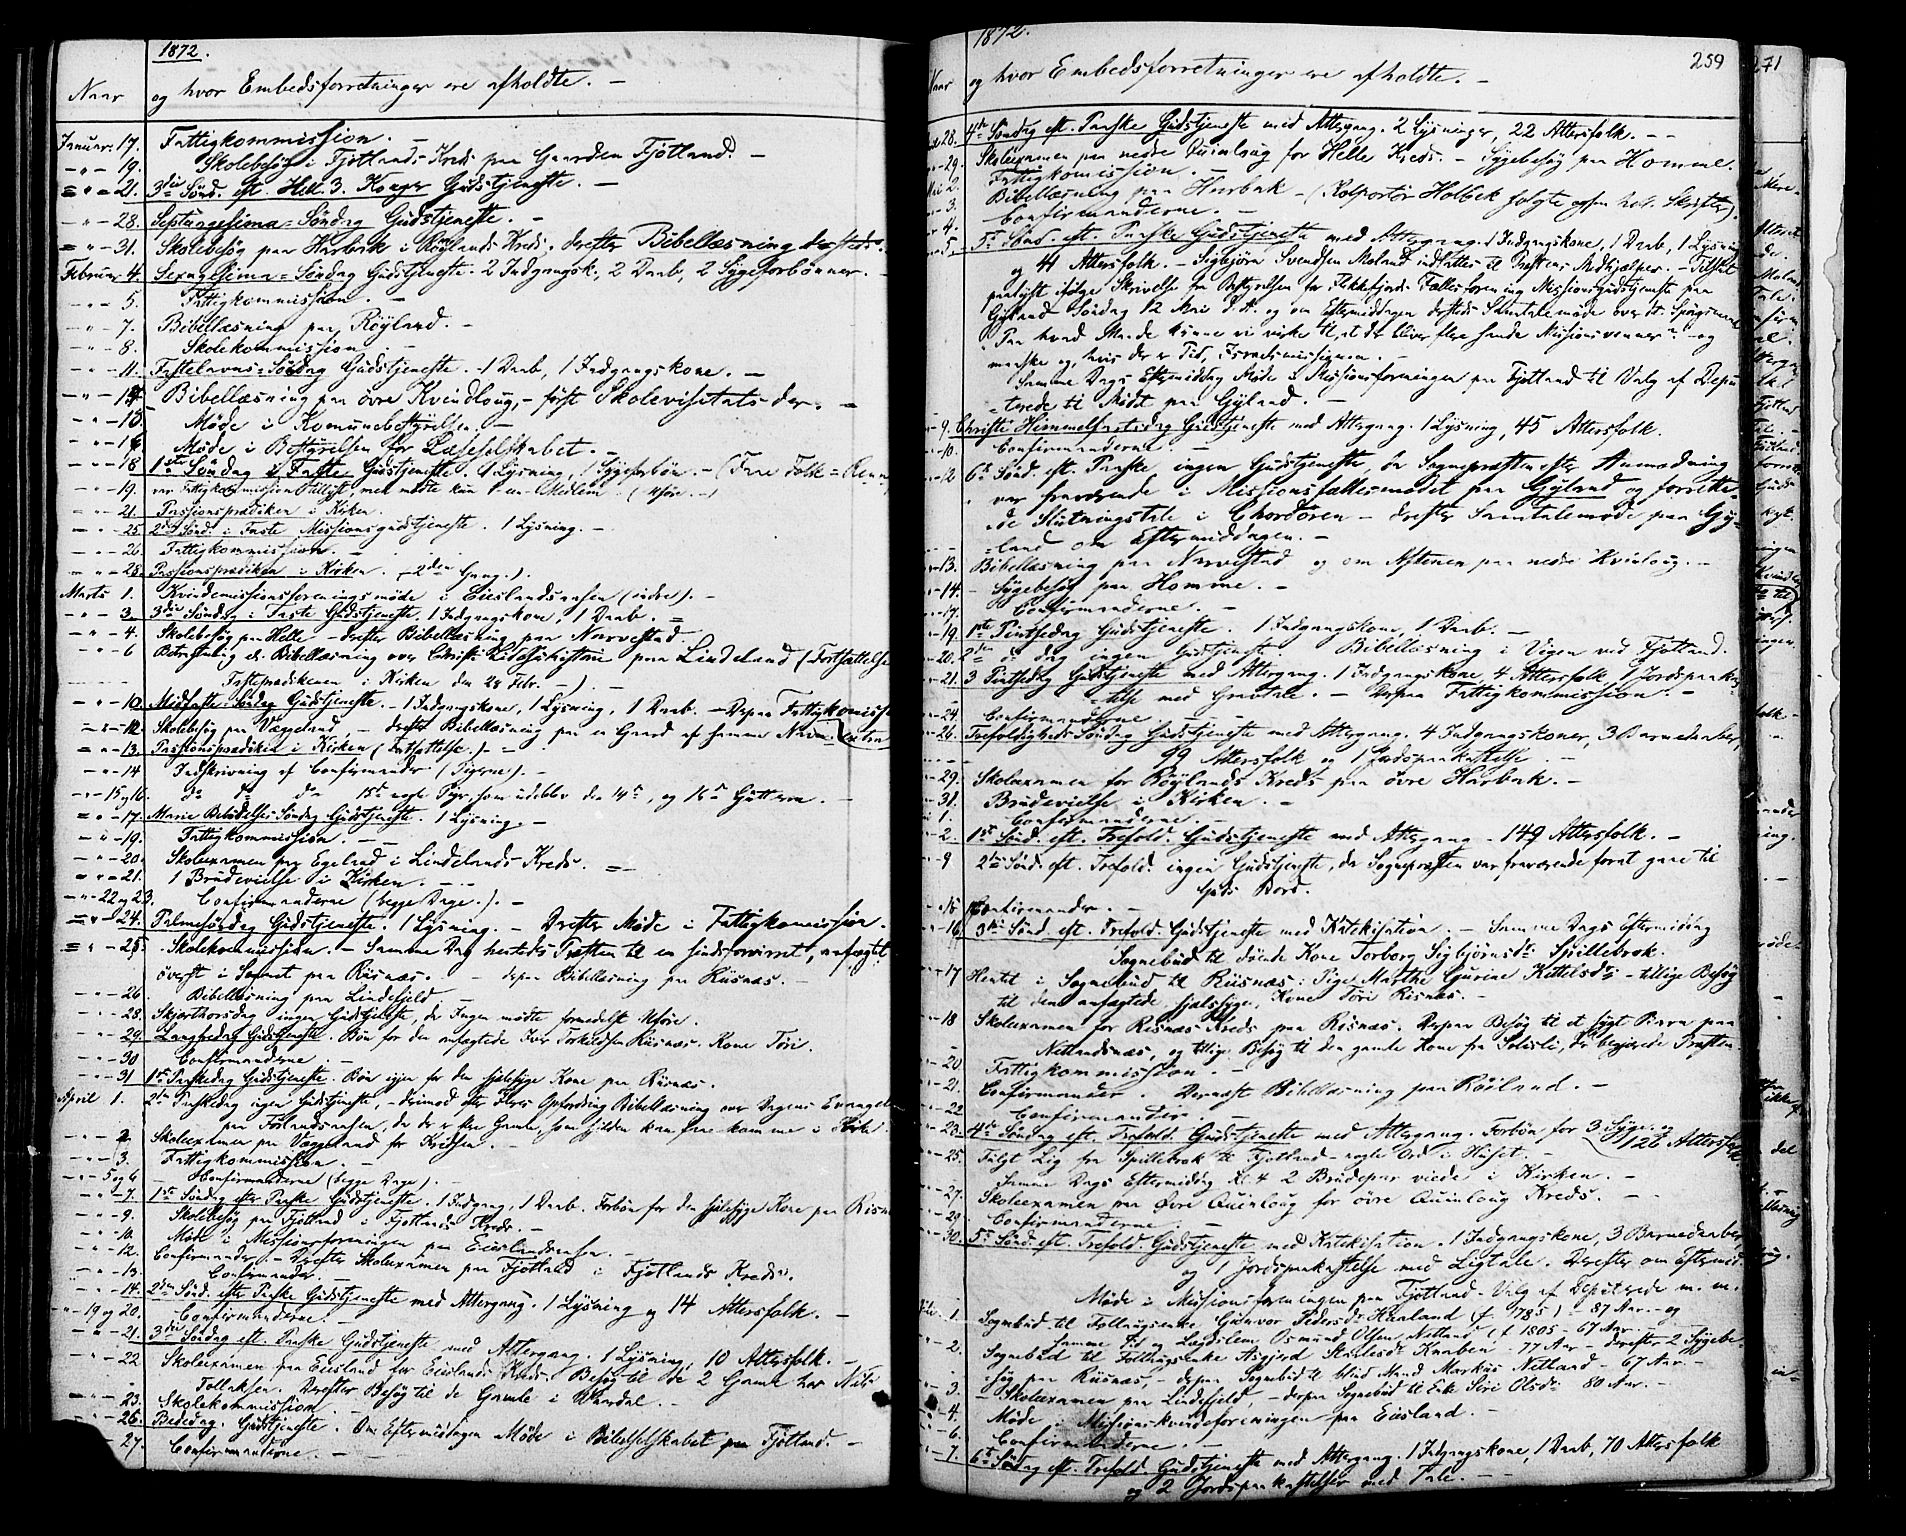 1872.
Naar og hvor Embedsforretninger ere afholdte. —
Januar 17. Fattigkommission. —
19. Skolebesøg i Fjotlands Kreds paa Gaarden Fjotland. —
21. 3die Sønd. eft. Hell. 3. Konger Gudstjeneste. —
28. Septuagesima-Søndag Gudstjeneste. —
31. Skolebesøg paa Harbak i Røylands Kreds, derefter Bibellæsning dersteds.
Februar 4. Sexagesima-Søndag Gudstjeneste. 2 Indgangsk., 2 Daab, 2 Sygeforbønner. —
5. Fattigkommission. —
7. Bibellæsning paa Røyland. —
8. Skolekommission. —
11. Fastelavns-Søndag Gudstjeneste. 1 Daab, 1 Indgangskone. —
14. Bibellæsning paa øvre Kvindloug, — først Skolevisitats der. —
15. Møde i Komunebestyrelsen. —
16. Møde i Bestyrelsen for Læseselskabet. —
18. 1ste Søndag i Faste Gudstjeneste. 1 Lysning, 1 Sygeforbøn. — (Faae Folk
19. var Fattigkommission tillyst, men mødte kun en Medlem. (Uføre. —)
21. Passionsprædiken i Kirken.
25. 2den Sønd. i Faste Missionsgudstjeneste. 1 Lysning. —
26. Fattigkommission. —
28. Passionsprædiken i Kirken. (2den Gang.).
Marts 1. Kvindemissionsforeningsmøde i Eieslandsaasen (indre). —
3. 3die Søndag i Faste Gudstjeneste, 1 Indgangskone, 1 Daab. —
4. Skolebesøg paa Helle — derefter Bibellæsning paa Narvestad
6. Betragtning el. Bibellæsning over Christi Lidelseshistorie paa Lindeland (Fortsættelse
Fasteprædikenen i Kirken den 28 Febr. —). —
10. Midfaste-Søndag Gudstjeneste. 1 Indgangskone, 1 Lysning, 1 Daab. — Derpaa Fattigkomiss
12. Skolebesøg paa Væggeland, — derefter Bibellæsning paa en Gaard af samme Navn
13. Passionsprædiken i Kirken (Fortsættelse.) —
14. Indskrivning af Confirmander (Pigerne). —
15 og 16. do do do 15de nogle Piger, som udeblev den 14de, og 16de Gutterne. —
17. Mariæ Bebudelses-Søndag Gudstjeneste. 1 Lysning. —
19. Fattigkommission. —
20. Skoleexamen paa Egeland i Lindelands-Kreds. —
21. 1 Brudevielse i Kirken. —
22 og 23. Confirmanderne (begge Dage.). —
24. Palmesøndag Gudstjeneste. 1 Lysning. — Derefter Møde i Fattigkommission.
25. Skolekommission. — Samme Dag hentedes Præsten til en sindsforvirret, anfægtet
øverst i Sognet paa Risnæs. derpaa Bibellæsning paa Riisnæs. —
26. Bibellæsning paa Lindefjeld. —
28. Skjærthorsdag ingen Gudstjeneste, da Ingen mødte formedelst Uføre. —
29. Langfredag Gudstjeneste. Bøn for den anfægtede Iver Torkildsen Riisnæs. Kone Tøri.
30. Confirmanderne. —
31. 1ste Paaskedag Gudstjeneste. Bøn igjen for den sjælesyge Kone paa Riisnæs.
April 1. 2den Paaskedag ingen Gudstjeneste, — derimod efter Fleres Opfordring Bibellæsning over Dagens Evangel
paa Førlandsaasen, da der er flere Gamle, som sjelden kan faae komme i Kirke.
2. Skoleexamen paa Væggeland for Kredsen. —
3. Fattigkommission. —
5 og 6. Confirmanderne (begge Dage). —
7. 1ste Søndag efter Paaske Gudstjeneste. 1 Indgang, 1 Daab. Forbøn for den sjælesyge Kone paa Risn
9. Skolebesøg paa Fjotland i Fjotlands Kreds. —
10. Møde i Missionsforeningen paa Eieslandsaasen. —
12. Confirmander. — Derefter Skoleexamen paa Fjotland i Fjotlands Kreds.
13. Confirmander. —
14. 2den Sønd. efter Paaske Gudstjeneste med Altergang. 1 Lysning og 14 Altersfolk. —
19 og 20. Confirmanderne. —
21. 3die Søndag eft. Paaske Gudstjeneste med Altergang. 1 Lysning, 10 Altersfolk. —
22. Skoleexamen paa Eiesland for Eieslands Kreds. Besøg til de 2 Gamle hos Nils
Tollaksen. Derefter Besøg til de Gamle i Aardal. —
23. Skolekommission.
26. Bededag. Gudstjeneste. Om Eftermiddagen Møde i Bibelselskabet paa Fjotland. —
27. Confirmanderne. —
1872.
259
Naar og hvor Embedsforretninger ere afholdte. —
28. 4de Søndag eft. Paaske Gudstjeneste med Altergang. 2 Lysninger, 22 Altersfolk. —
29. Skoleexamen paa nedre Quinloug for Helle Kreds. — Sygebesøg paa Homme.
2. Fattigkomission. —
3. Bibellæsning paa Harbak — (Kolportør Holbek fulgte
4. Confirmanderne. —
5. 5te Sønd. eft. Paaske Gudstjeneste med Altergang. 1 Indgangskone, 1 Daab, 1 Lysning
og 41 Altersfolk. — Sigbjørn Svendsen Moland indsættes til Præstens Medhjælper. —
oplyst ifølge Skrivelse fra Bestyrelsen for Flekkefjords Fællesforening Missionsgudstjeneste paa
Gyland Søndag 12 Mai d. A. og om Eftermiddagen dersteds Samtalemøde over dt. Spørgsmaal
"Paa hvad Maade kunne vi virke til, at der bliver flere sande Missionsvenner?" og
maaske og, hvis der er Tid, Israelsmissionen. —
Samme Dags Eftermiddag Møde i Missionsforeningen paa Fjotland til Valg af Depu
terede til Mødet paa Gyland. —
9. Christi Himmelfartsdag Gudstjeneste med Altergang. 1 Lysning, 45 Altersfolk.
10. Confirmanderne. —
12. 6te Sønd. eft. Paaske ingen Gudstjeneste, da Sognepræsten efter Anmodning
var fraværende i Missionsfællesmødet paa Gyland og forrette-
de Slutningstale i Chordøren — derefter Samtalemøde paa Gy-
land om Eftermiddagen. —
13. Bibellæsning paa Narvestad og om Aftenen paa nedre Kvinloug. —
14. Sygebesøg paa Homme. —
17. Confirmanderne. —
19. 1ste Pintsedag Gudstjeneste. 1 Indgangskone, 1 Daab. —
20. 2den do dag ingen Gudstjeneste. Bibellæsning i Vigen ved Fjotland.
21. 3 Pintsedag Gudstjeneste med Altergang. 1 Indgangskone, 4 Altersfolk, 1 Jordspaakas
telse med Gravtale. — Derpaa Fattigkommission. —
24. Confirmanderne. —
26. Trefoldigheds Søndag Gudstjeneste med Altergang. 4 Indgangskoner, 3 Barnedaaber,
99 Altersfolk og 1 Jordspaakastelse. —
29. Skoleexamen for Røylands Kreds paa øvre Harbak. —
31. Brudevielse i Kirken. —
1. Confirmanderne. —
2. 1ste Sønd. eft. Trefold. Gudstjeneste med Altergang — 149 Altersfolk. —
9. 2den Sønd. eft. Trefold. ingen Gudstjeneste, da Sognepræsten var fraværende forat gaae til
Guds Bord.
15. Confirmander. —
16. 3die Sønd. eft. Trefold. Gudstjeneste med Katekisation. — Samme Dags Eftermiddag
Sognebud til døende Kone Torborg Sigbjørnsdr. Spillebrok.
17. Hentet i Sognebud til Riisnæs: Pige Marthe Gurine Kittelsdr. — tillige Besøg
til den anfægtede, sjælssyge, Kone Tøri Risnæs. —
18. Skoleexamen for Risnæs Kreds paa Risnæs. Derpaa Besøg til et sygt Barn paa
Netlandsnæs, og tillige Besøg til den gamle Kone fra Solisli, der begjærede Præsten.
20. Fattigkommission. —
21. Confirmander. Dernæst Bibellæsning paa Røiland. —
22. Confirmander. —
23. 4de Søndag eft. Trefold. Gudstjeneste med Altergang. Forbøn for 3 Syge, og
126 Altersfolk
25. Fulgt Lig fra Spillebrok til Fjotland — nogle Ord i Huset. —
Samme Dags Eftermiddag Kl. 4 2 Brudepar viede i Kirken. —
27. Skoleexamen paa Øvre Quinloug for øvre Quinloug Kreds. —
29. Confirmanderne. —
30. 5te Sønd. eft. Trefold. Gudstjeneste med Katekisation. 1 Indgangskone, 3 Barnedaaber
og 1 Jordspaakastelse med Ligtale. Derefter om Eftermid
Møde i Missionsforeningen paa Fjotland. Valg af Deputerede m. m.
1. Sognebud til Føllingsenke Gunvor Pedersdr. Haaland (f. 1785) — 87 Aar. — og
Samme Tid og Lægdslem Osmund Olsen Netland (f. 1805 — 67 Aar. —
2. Sognebud til Føllingsenke Asgjerd Staalesdr. Knaben — 77 Aar — derefter 2 Sygebe-
søg paa Riisnæs, — derpaa Sognebud til blind Mand Markus Netland — 67 Aar. —
3. Skoleexamen paa Lindefjeld, — derpaa Sognebud til Enke Siri Olsdr. 80 Aar. —
4. Møde i Missionskvindeforeningen paa Eiesland. —
6. Confirmanderne. —
7. 6te Søndag eft. Trefold. Gudstjeneste med Altergang. 1 Indgangskone, 1 Daab, 70 Altersfolk
og 2 Jordspaakastelser med Tale. —
271